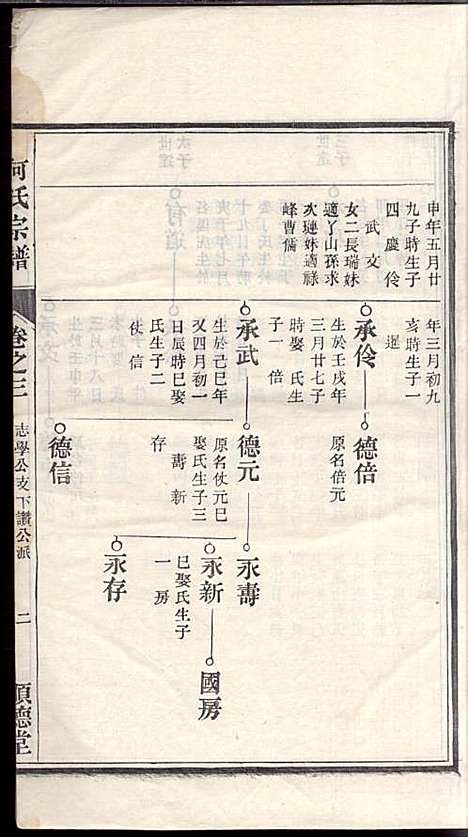 申年五月廿
九子時生子
四 慶 伶
武 文
女二長瑞妹
適丫山孫求
次璉妹適祿
峰曹儒
年三月初九
亥時生子一
暹
承伶
生於壬戌年
三月廿七子
時娶 氏生
子一 倍
德倍
原名倍元
承武
生於己巳年
又四月初一
日辰時已娶
氏生子二
伏 信
德元
原名伏元已
娶氏生子三
壽 新
存
永壽
永新
已娶氏生子
一 房
國房
永存
德信
何氏宗譜
卷之三
志學公支下讚公派
二
順德堂